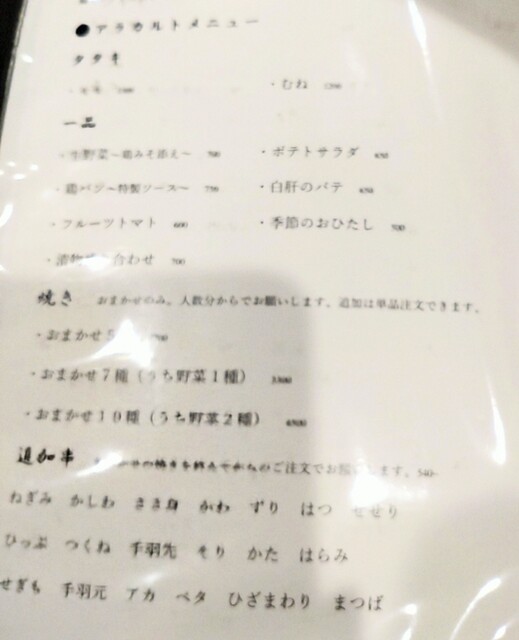 ●アラカルトメニュー
タタキ
・むね
一品
・生野菜～鶏みそ添え～ 700 ・ポテトサラダ 650
・鶏パジ～特製ソース～ 750 ・白肝のパテ 650
・フルーツトマト 600 ・季節のおひたし 500
・漬物 合わせ 700
焼き おまかせのみ。人数分からでお願いします。追加は単品注文できます。
・おまかせ5
・おまかせ7種（うち野菜1種） 3300
・おまかせ10種（うち野菜2種） 4500
追加串 の焼きを終えてからのご注文でお願いします。540~
ねぎみ かしわ ささ身 かわ ずり はつ せせり
ひっぷ つくね 手羽先 そり かた はらみ
せぎも 手羽元 アカ ペタ ひざまわり まつば